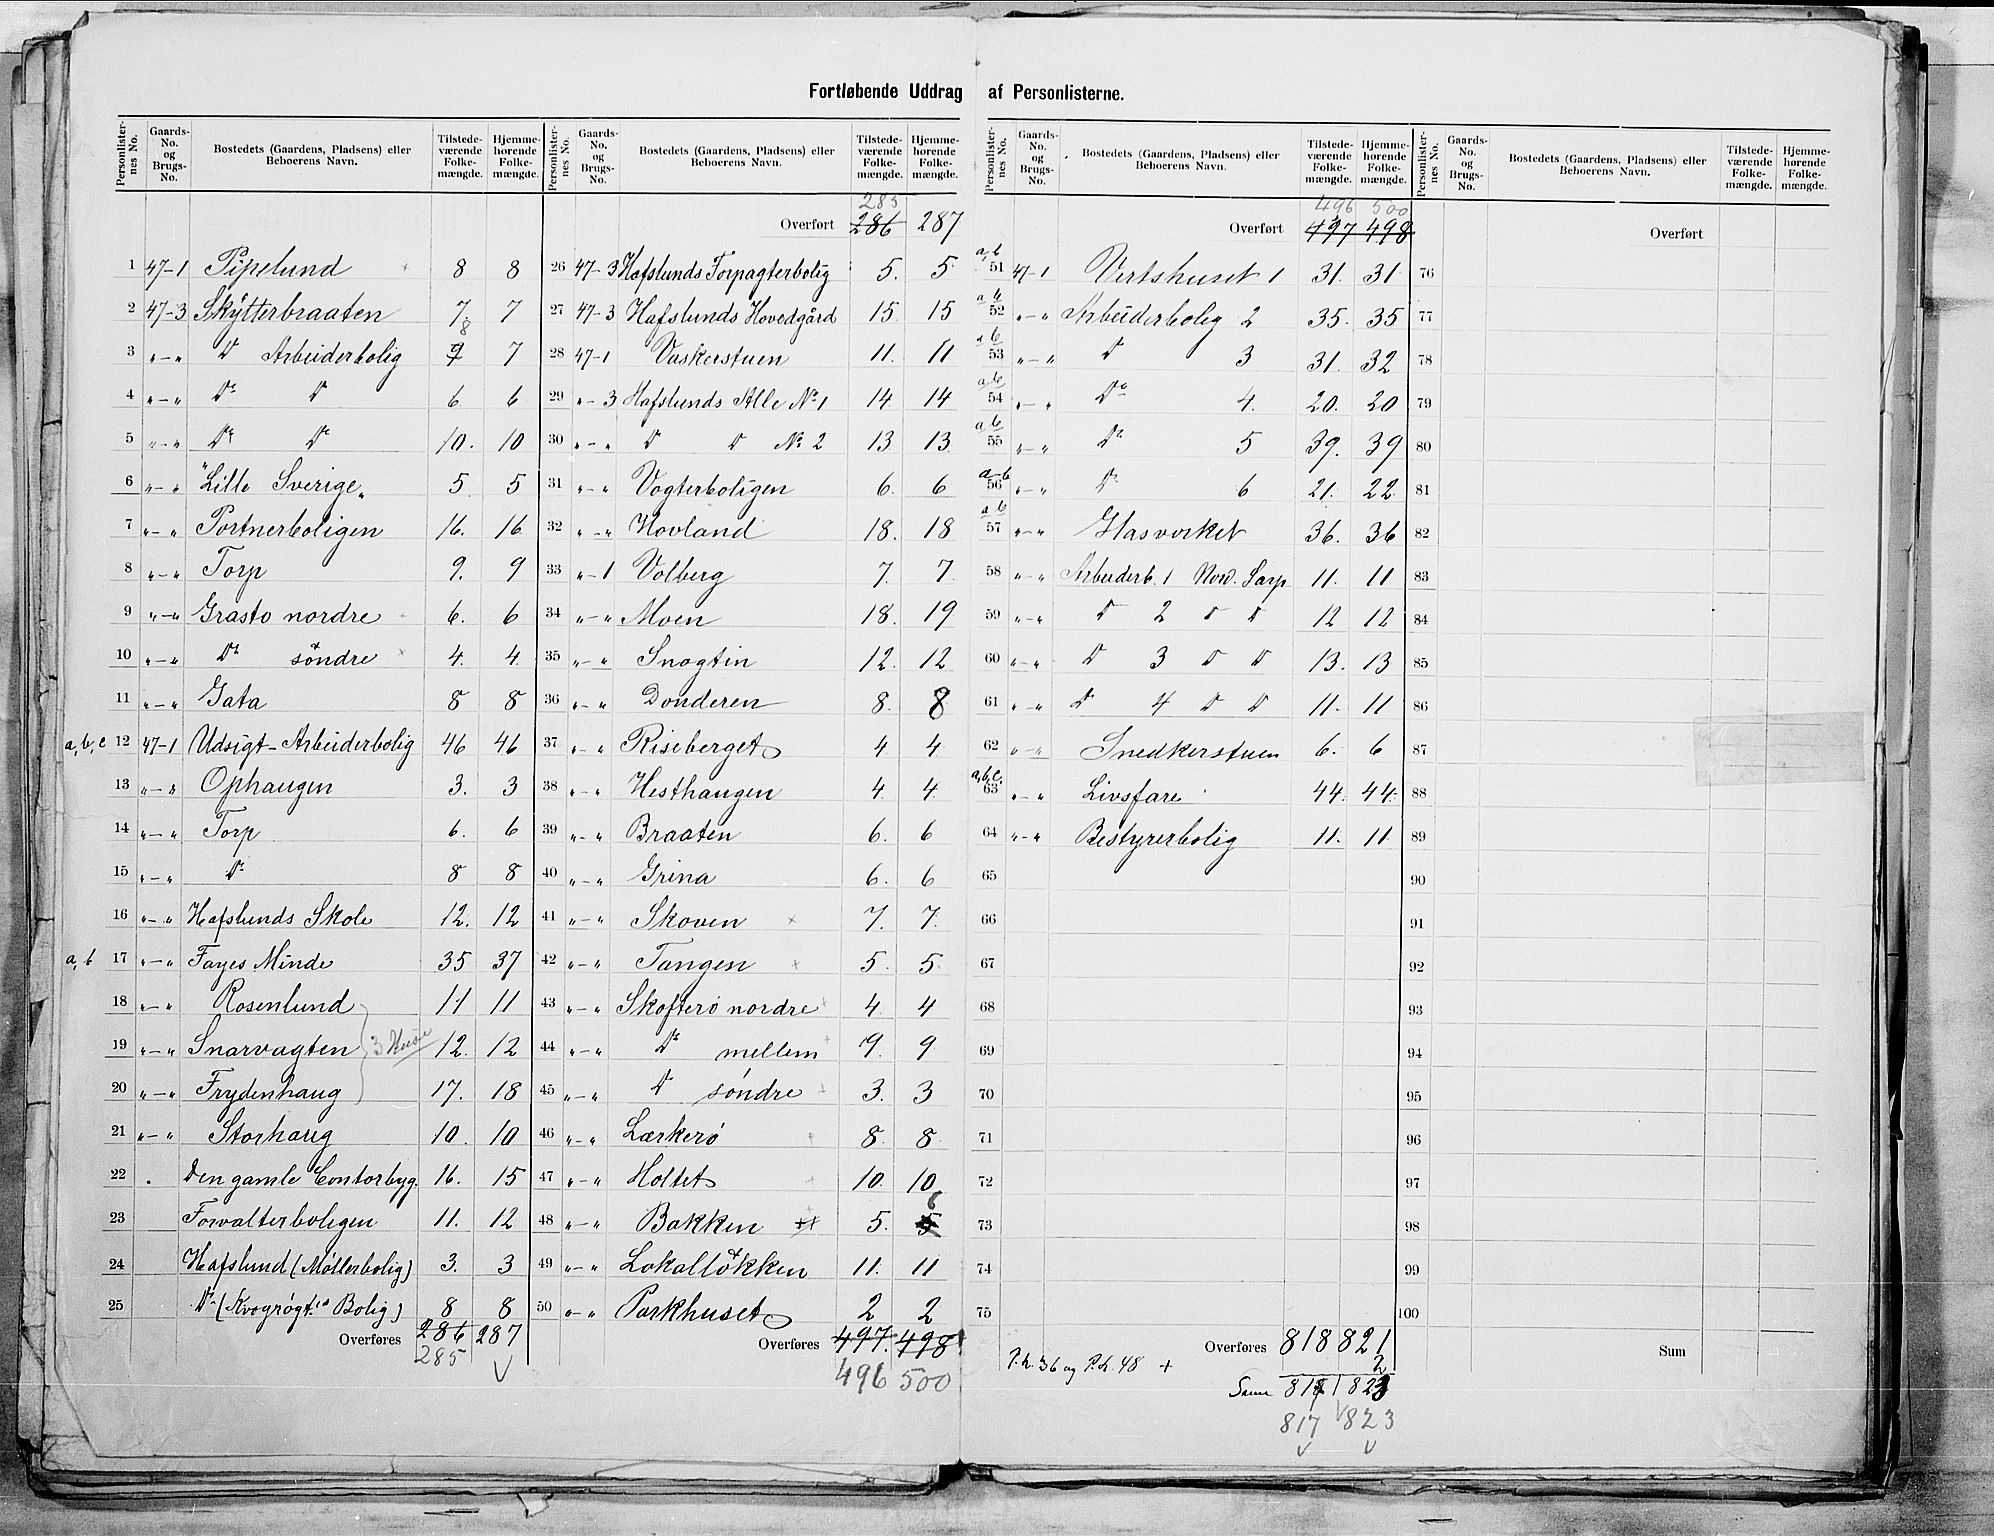 Fortløbende Uddrag af Personlisterne.
Personlisternes No. | Gaards-No. og Brugs-No. | Bostedets (Gaardens, Pladsens) eller Beboerens Navn. | Tilstedeværende Folkemængde. | Hjemmehørende Folkemængde.
1 47-1 Pipelund + 8 8
2 47-3 Skÿtterbraaten 7. 7
3 „-„ D Arbeiderbolig 9 8 7
4 „-„ Do D 6 6
5 „-„ Do Do 10. 10
6 „-„ "Lille Sverige„ 5 5
7 „-„ Portnerboligen 16. 16
8 „-„ Torp 9. 9
9 „-„ Grastø nordre + 6. 6
10 „-„ Do søndre × 4. 4
11 „-„ Gata 8 8
a, b, c 12 47-1 Udsigt-Arbeiderbolig 46 46
13 „-„ Ophaugen 3. 3
14 „-„ Torp 6. 6
15 „-„ Do 8 8
16 „-„ Hafslunds Skole 12. 12
a, b 17 „-„ Fayes Minde 35 37
18 „-„ Rosenlund 11 11
19 „-„ Snarvagten 3 Huse 12. 12
20 „-„ Frydenhaug 17. 18
21 „-„ Storhaug 10. 10
22 . Den gamle Contorbyg. 16. 15
23 Forvalterboligen 11. 12
24 Hafslund (Møllerbolig) 3. 3
25 Do (Kvogrøgt. Bolig) 8 8
Overføres 286 287
285
Personlisternes No. | Gaards-No. og Brugs-No. | Bostedets (Gaardens, Pladsens) eller Beboerens Navn. | Tilstedeværende Folkemængde. | Hjemmehørende Folkemængde.
285
Overført 286 287
26 47-3 Hafslunds Forpagterbolig 5. 5
27 47-3 Hafslunds Hovedgård 15. 15
28 47-1 Vaskerstuen 11. 11
29 „-3 Hafslunds Alle No 1 14. 14
30 „-„ D D No 2 13 13
31 „-„ Vogterboligen 6. 6
32 „-„ Hovland 18. 18
33 „-1 Volberg 7. 7
34 „-„ Moen 18. 19
35 „-„ Snogtin 12. 12
36 „-„ Donderen 8. 8
37 „-„ Riseberget 4 4
38 „-„ Hesthaugen 4. 4
39 „-„ Braaten 6. 6
40 „-„ Grina 6. 6
41 „-„ Skoven × 7. 7.
42 „-„ Tangen + 5. 5.
43 „-„ Skofterø nordre + 4 4
44 „-„ Do mellem + 9. 9.
45 „-„ D søndre + 3. 3
46 „-„ Lærkerø 8. 8
47 „-„ Holtet 10. 10
48 „-„ Bakken 5. 5 6
49 „-„ Lokalløkken 11. 11
50 „-„ Parkhuset 2 2
Overføres 497. 498
496 500
Personlisternes No. | Gaards-No. og Brugs-No. | Bostedets (Gaardens, Pladsens) eller Beboerens Navn. | Tilstedeværende Folkemængde. | Hjemmehørende Folkemængde.
496 500
Overført 497 498
a, b 51 47-1 Vertshuset 1 31. 31
a b 52 „-„ Arbeiderbolig 2 35. 35
a b 53 „-„ D 3 31. 32
a, b 54 „-„ Do 4. 20. 20
a b 55 „-„ Do 5 39. 39
a, b 56 „-„ Do 6 21. 22
a b 57 „-„ Glasverket 36. 36
58 „-„ Arbeiderb. 1 Nord. Sarp 11. 11
59 „-„ D 2 D D 12 12
60 „-„ D 3 D D 13. 13
61 „-„ D 4 D D 11. 11
62 „-„ Snedkerstuen 6. 6
a, b, c. 63 „-„ Livsfare 44. 44.
64 „-„ Bestyrerbolig 11. 11
65
66
67
68
69
70
71
72
73
74
75
Overføres 818 821
P.L. 36 og P.L. 48 + 2
817 823
817 823
Personlisternes No. | Gaards-No. og Brugs-No. | Bostedets (Gaardens, Pladsens) eller Beboerens Navn. | Tilstedeværende Folkemængde. | Hjemmehørende Folkemængde.
Overført
76
77
78
79
80
81
82
83
84
85
86
87
88
89
90
91
92
93
94
95
96
97
98
99
100
Sum